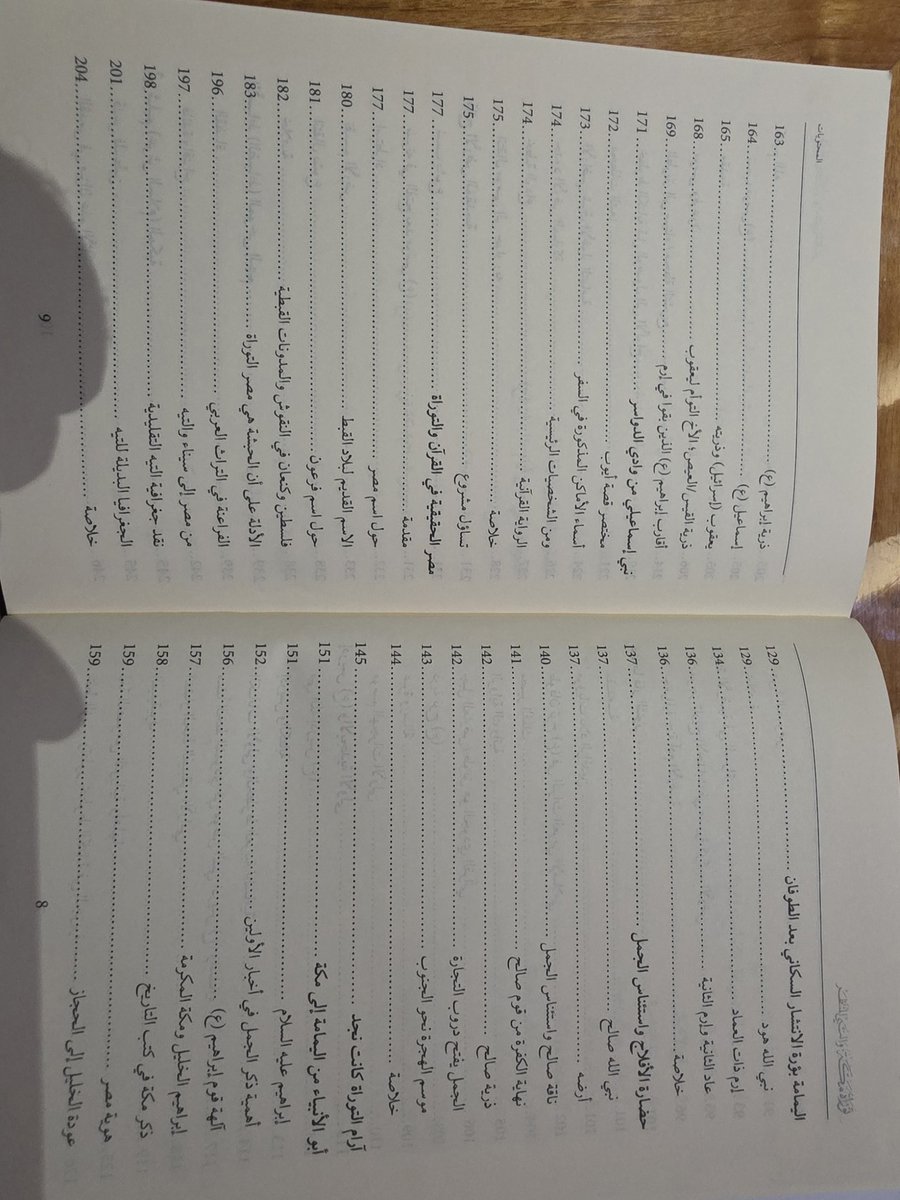 اليمامة بؤرة الانتشار السكاني بعد الطوفان ........ 129
نبي الله هود ........ 129
إرم ذات العماد ........ 134
عاد الثانية وإرم الثانية ........ 136
خلاصة ........ 136
حضارة الأفلاج واستئناس الجمل ........ 137
نبي الله صالح ........ 137
أرضه ........ 137
ناقة صالح واستئناس الجمل ........ 140
نهاية الكفرة من قوم صالح ........ 141
ذرية صالح ........ 142
الجمل يفتح دروب التجارة ........ 142
موسم الهجرة نحو الجنوب ........ 143
خلاصة ........ 144
آرام التوراة كانت نجد ........ 145
أبو الأنبياء من اليمامة إلى مكة ........ 151
إبراهيم عليه السلام ........ 151
أهمية ذكر الجمل في أخبار الأولين ........ 152
آلهة قوم إبراهيم (ع) ........ 156
إبراهيم الخليل ومكة المكرمة ........ 157
ذكر مكة في كتب التاريخ ........ 158
هوية مصر ........ 159
عودة الخليل إلى الحجاز ........ 159
8
المحتويات
ذرية إبراهيم (ع) ........ 163
إسماعيل (ع) ........ 164
يعقوب (إسرائيل) وذريته ........ 165
ذرية القيس/العيص؛ الأخ التوأم ليعقوب ........ 168
أقارب إبراهيم (ع) الذين بقوا في إرم ........ 169
نبي إسماعيلي من وادي الدواسر ........ 171
مختصر قصة أيوب ........ 172
أسماء الأماكن المذكورة في السفر ........ 173
ومن الشخصيات الرئيسية ........ 174
الرواية القرآنية ........ 174
خلاصة ........ 175
تساؤل مشروع ........ 175
مصر الحقيقية في القرآن والتوراة ........ 177
مقدمة ........ 177
حول اسم مصر ........ 177
الاسم القديم لبلاد القبط ........ 180
حول اسم فرعون ........ 181
فلسطين وكنعان في النقوش والمدونات القبطية ........ 182
الأدلة على أن الحبشة هي مصر التوراة ........ 183
الفراعنة في التراث العربي ........ 196
من مصر إلى سيناء والتيه ........ 197
نقد جغرافية التيه التقليدية ........ 198
الجغرافيا البديلة للتيه ........ 201
خلاصة ........ 204
9